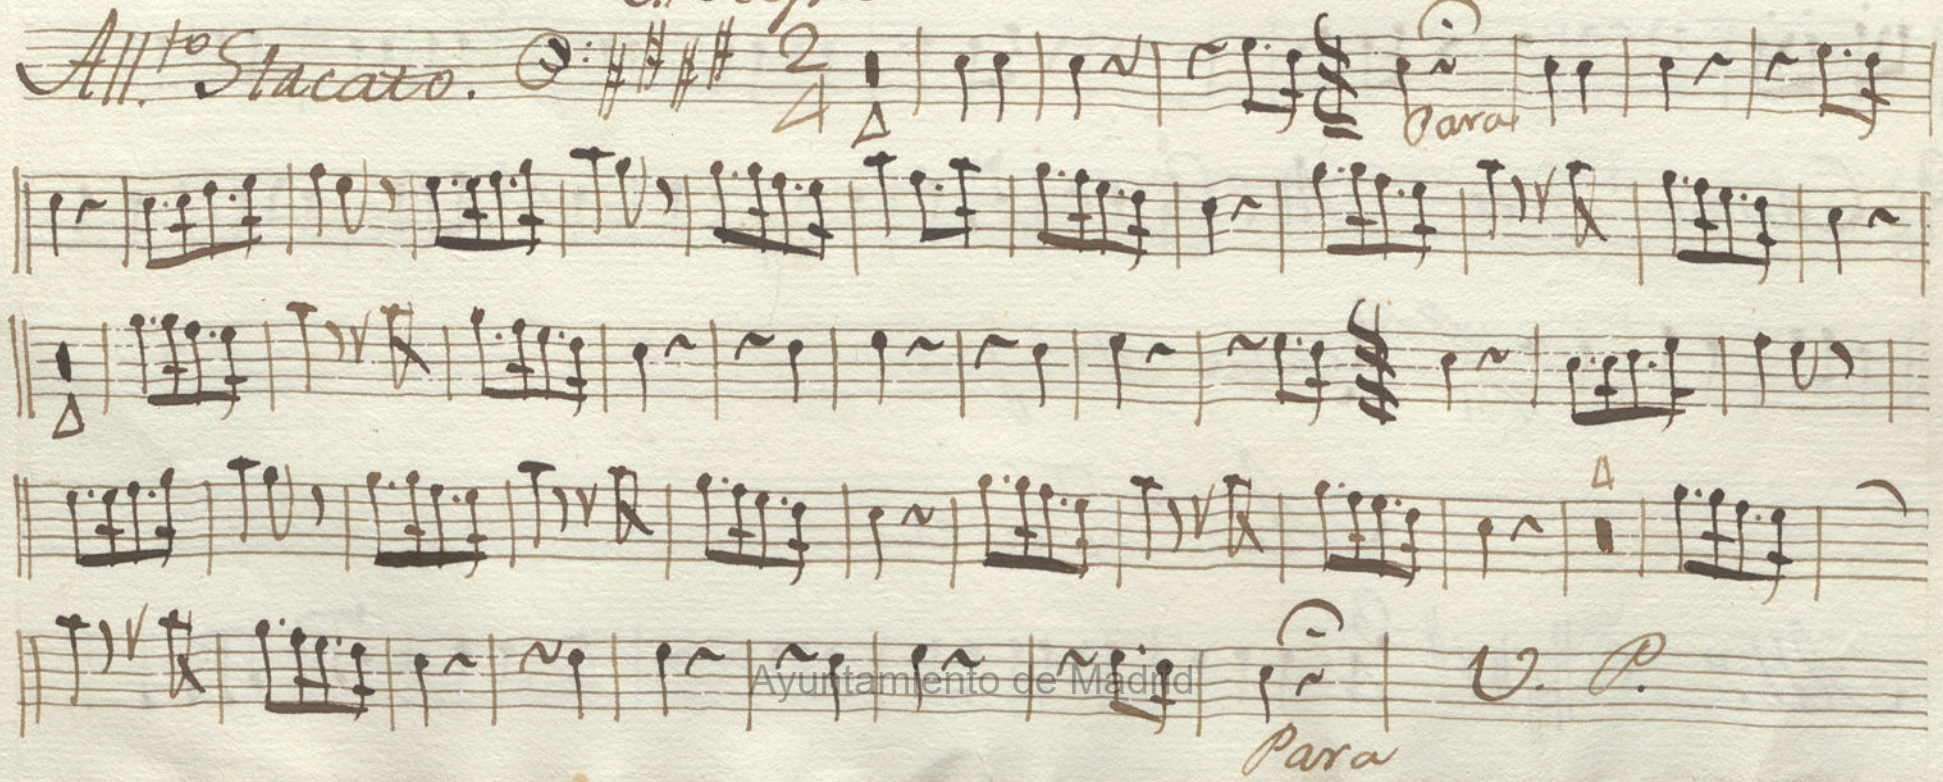 All.to Stacato. 2/4
4
Para
4
4
Ayuntamiento de Madrid
V. P.
Para